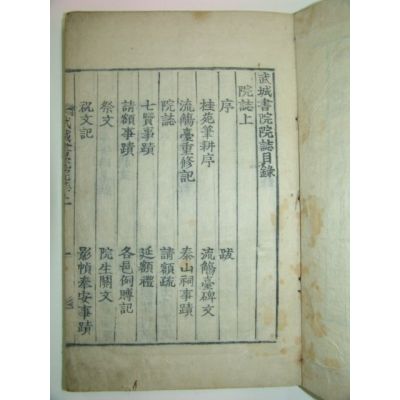 武城書院院誌目錄
院誌上
序 跋
桂苑筆耕序 流觴臺碑文
流觴臺重修記 泰山祠事蹟
院誌 請額疏
七賢事蹟 延額禮
請額事蹟 各邑例賻記
祭文 院生關文
祝文記 影幀奉安事蹟